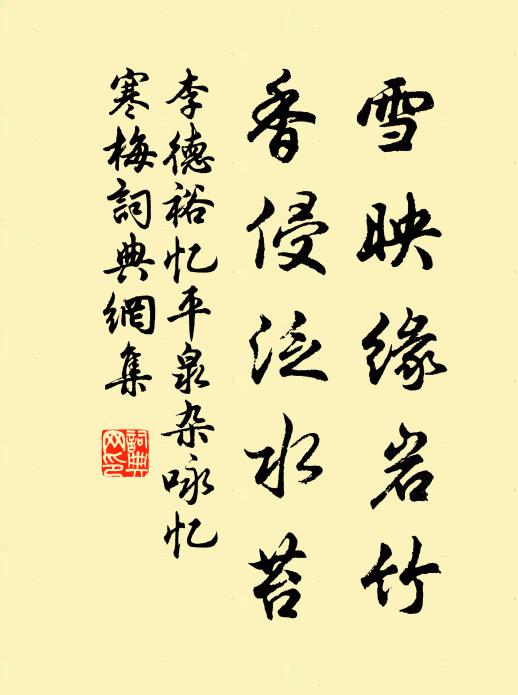 雪映缘岩竹
香侵泛水苔
李德裕忆平泉杂咏忆
寒梅詞典網集
詞典网印